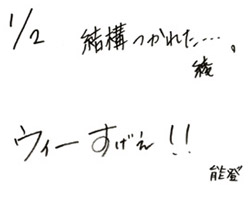 1/2 結構つかれた…。
綾
ウィーすげえ!!
能登